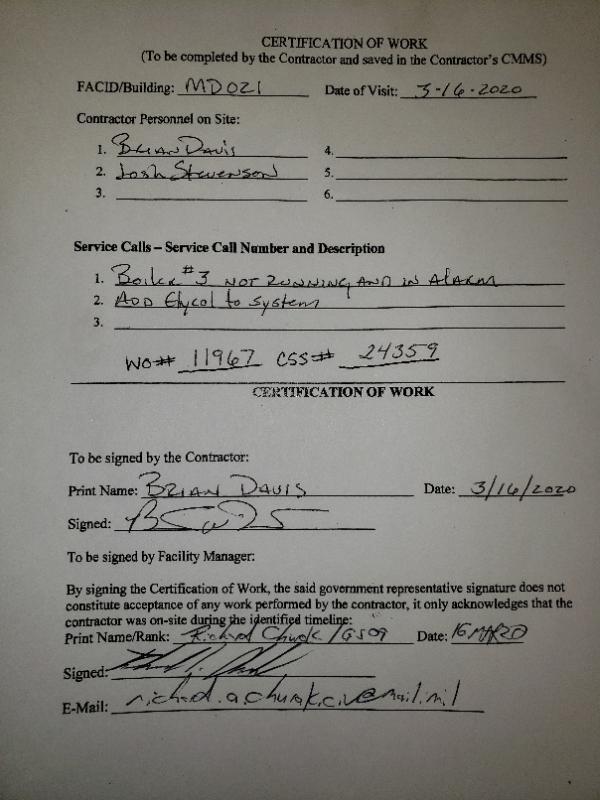 CERTIFICATION OF WORK
(To be completed by the Contractor and saved in the Contractor's CMMS)
FACID/Building: MD021 Date of Visit: 3-16-2020
Contractor Personnel on Site:
1. Brian Davis 4.
2. Josh Stevenson 5.
3. 6.
Service Calls – Service Call Number and Description
1. Boiler #3 not running and in Alarm
2. ADD Glycol to system
3.
WO# 11967 CSS# 24359
CERTIFICATION OF WORK
To be signed by the Contractor:
Print Name: BRIAN DAVIS Date: 3/16/2020
Signed:
To be signed by Facility Manager:
By signing the Certification of Work, the said government representative signature does not
constitute acceptance of any work performed by the contractor, it only acknowledges that the
contractor was on-site during the identified timeline:
Print Name/Rank: Richard /GS09 Date: 16 MAR20
Signed:
E-Mail: